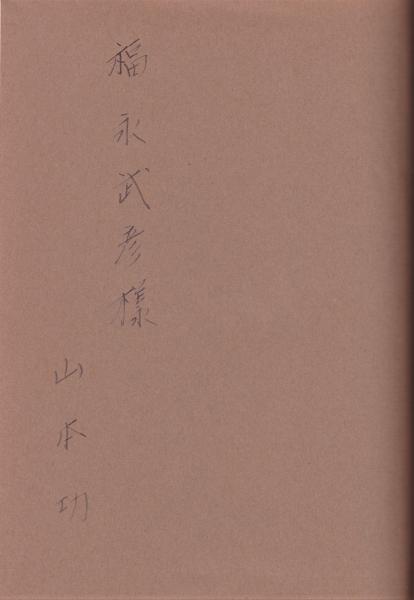 福永武彦様
山本功